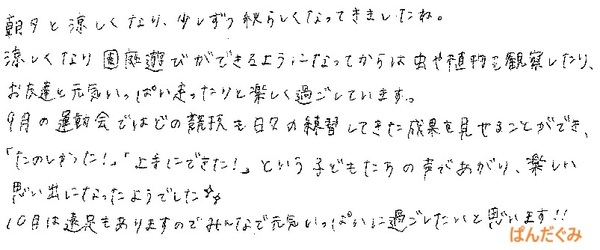 朝夕と涼しくなり、少しずつ秋らしくなってきましたね。
涼しくなり園庭遊びができるようになってからは虫や植物を観察したり、
お友達と元気いっぱい走ったりと楽しく過ごしています。
9月の運動会ではどの競技も日々の練習してきた成果を見せることができ、
「たのしかった!」「上手にできた!」という子どもたちの声であがり、楽しい
思い出になったようでした☆☆
10月は遠足もありますのでみんなで元気いっぱいに過ごしたいと思います!!
ぱんだぐみ